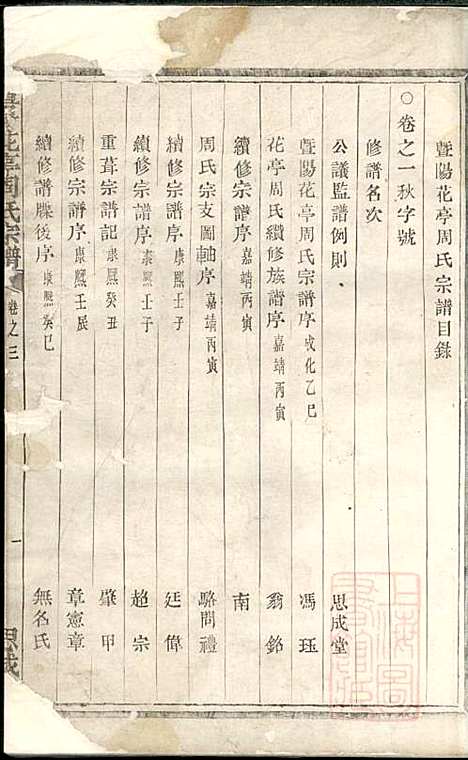 暨陽花亭周氏宗譜目錄
○卷之一秋字號
修譜名次
公議監譜例則 思成堂
暨陽花亭周氏宗譜序 成化乙巳 馮珏
花亭周氏續修族譜序 嘉靖丙寅 翁銘
續修宗譜序 嘉靖丙寅 南
周氏宗支圖軸序 嘉靖丙寅 駱問禮
續修宗譜序 康熙壬子 廷偉
續修宗譜序 康熙壬子 超宗
重葺宗譜記 康熙癸丑 肇甲
續修宗譜序 康熙壬辰 章憲章
續修譜牒後序 康熙癸巳 無名氏
花亭周氏宗譜 卷之三 一 思成
上海圖書館